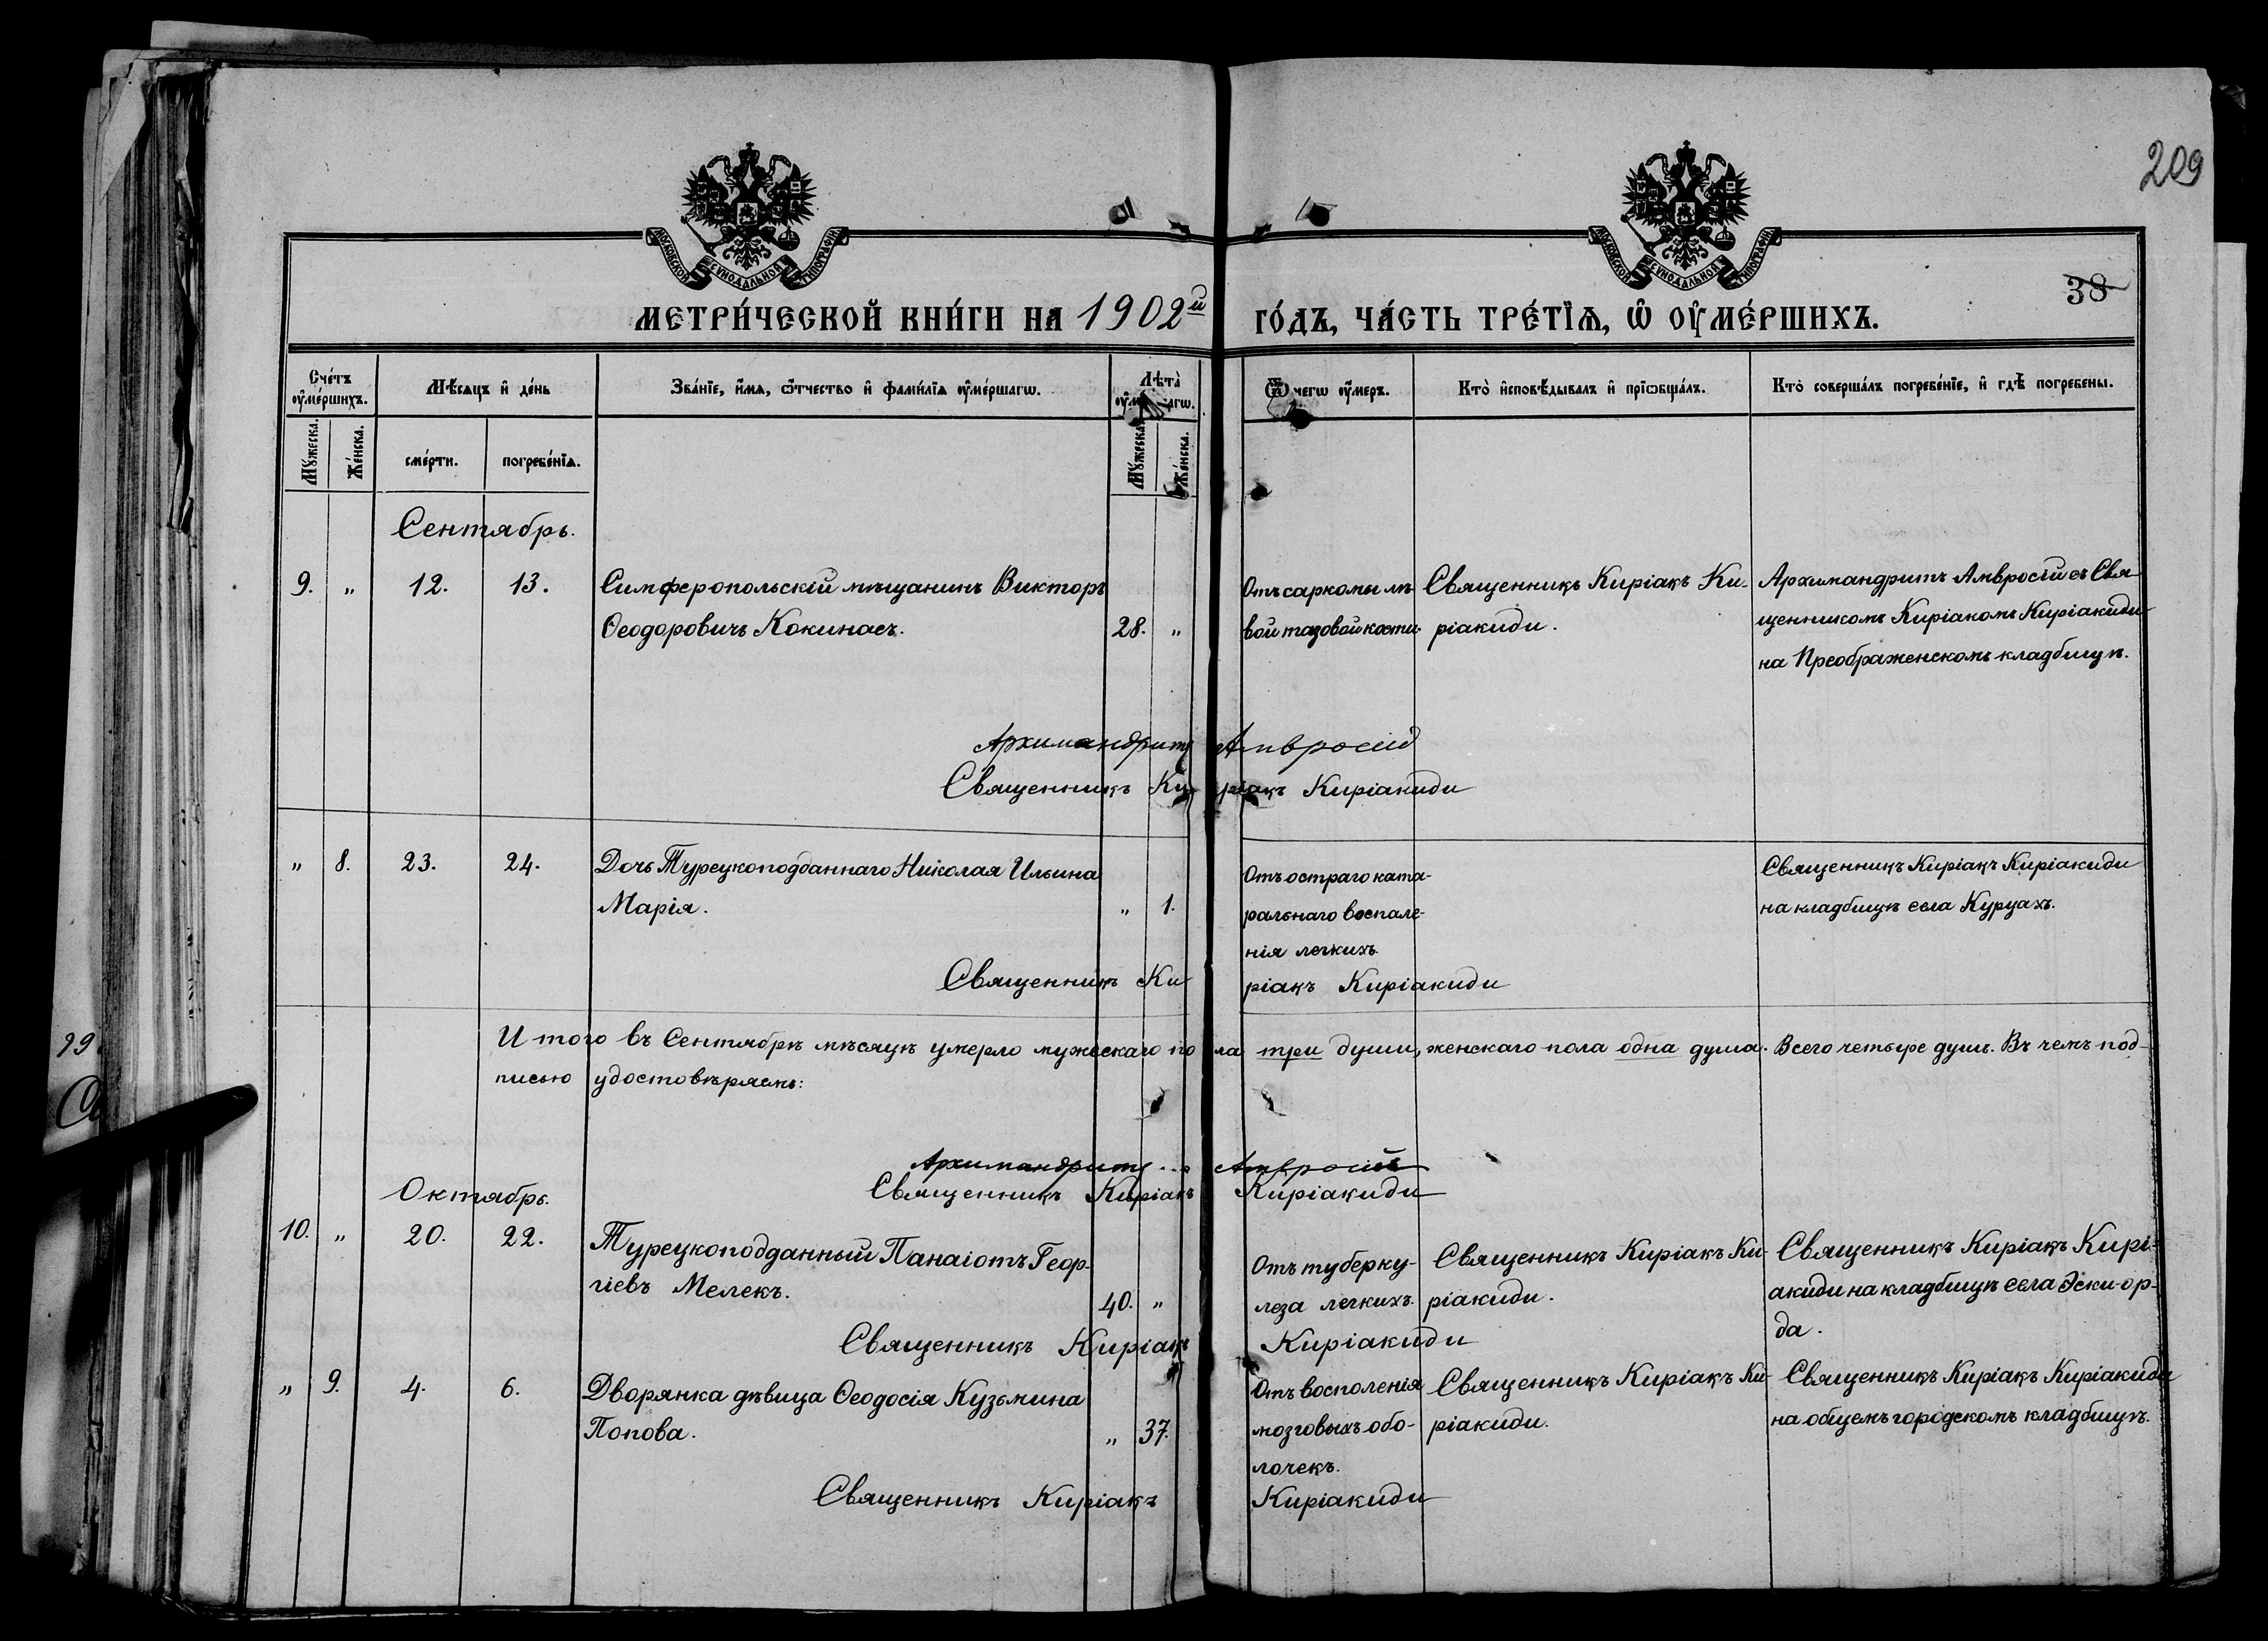 209
38
МОСКОВСКОЙ СѴНОДАЛЬНОЙ ТИПОГРАФІИ
МОСКОВСКОЙ СѴНОДАЛЬНОЙ ТИПОГРАФІИ
МЕТРИ́ЧЕСКОЙ КНИ́ГИ НА 1902й ГО́ДЪ, ЧА́СТЬ ТРЕ́ТЇѦ, Ѡ҆ ОУ҆МЕ́РШИХЪ.
Сче́тъ оу҆ме́ршихъ.
Мѣ́сяцъ и҆ де́нь
Зва́нїе, и҆́мѧ, ѻ҆́тчество и҆ фами́лїѧ оу҆ме́ршагѡ.
Лѣта̀
Ѿ чегѡ оу҆́меръ.
Кто̀ и҆сповѣ́дывалъ и҆ прїѻбща́лъ.
Кто̀ соверша́лъ погребе́нїе, и҆ гдѣ̀ погребены.
Мꙋ́жеска. Же́нска. сме́рти. погребе́нїѧ. Мꙋ́жеска. Же́нска.
Сентябрь.
9. „ 12. 13. Симферопольскій мѣщанинъ Викторъ
Ѳеодоровичъ Кокинасъ. 28. „
Отъ саркомы лѣ-
вой тазовой кости.
Священникъ Киріакъ Ки-
ріакиди.
Архимандритъ Амвросій съ Свя-
щенникомъ Киріакомъ Киріакиди
на Преображенскомъ кладбищѣ.
Архимандритъ Амвросій
Священникъ Киріакъ Киріакиди
„ 8. 23. 24. Дочь Турецкоподданнаго Николая Ильина
Марія. „ 1.
Отъ остраго ката-
ральнаго воспале-
нія легкихъ.
Священникъ Киріакъ Киріакиди
на кладбищѣ села Куруахъ.
Священникъ Киріакъ Киріакиди
Итого въ Сентябрѣ мѣсяцѣ умерло мужескаго пола три души, женскаго пола одна душа. Всего четыре душъ. Въ чемъ под-
писью удостовѣряемъ:
Архимандритъ Амвросій
Священникъ Киріакъ Киріакиди
Октябрь.
10. „ 20. 22. Турецкоподданный Панаіотъ Геор-
гіевъ Мелекъ. 40. „
Отъ туберку-
леза легкихъ.
Священникъ Киріакъ Ки-
ріакиди.
Священникъ Киріакъ Кирі-
акиди на кладбищѣ села Эски-ор-
да.
Священникъ Киріакъ Киріакиди
„ 9. 4. 6. Дворянка дѣвица Ѳеодосія Кузьмина
Попова. „ 37.
Отъ восполенія
мозговыхъ обо-
лочекъ.
Священникъ Киріакъ Ки-
ріакиди.
Священникъ Киріакъ Киріакиди
на общемъ городскомъ кладбищѣ.
Священникъ Киріакъ Киріакиди